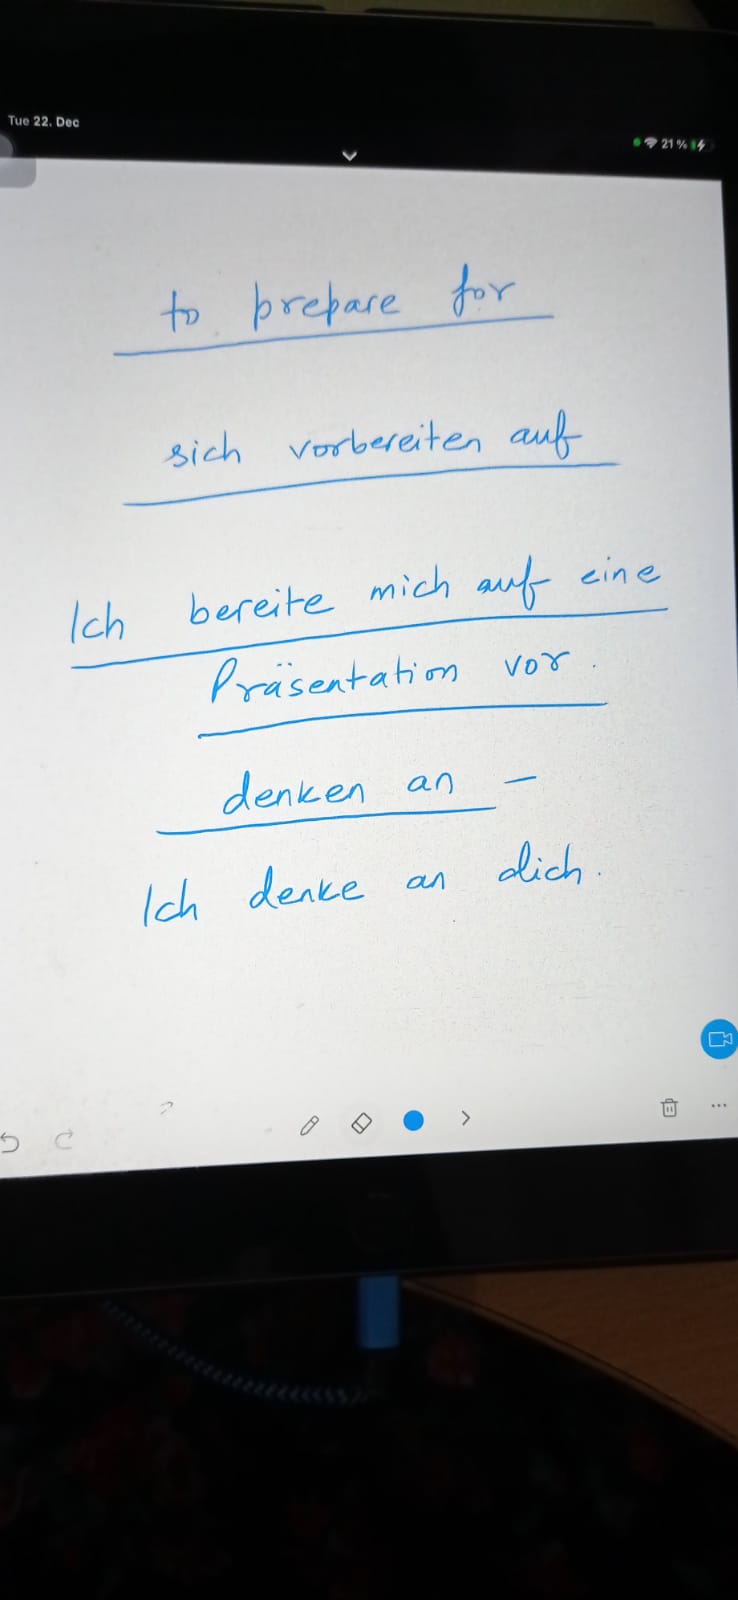 Tue 22. Dec
21 %
to prepare for
sich vorbereiten auf
Ich bereite mich auf eine
Präsentation vor.
denken an –
Ich denke an dich.